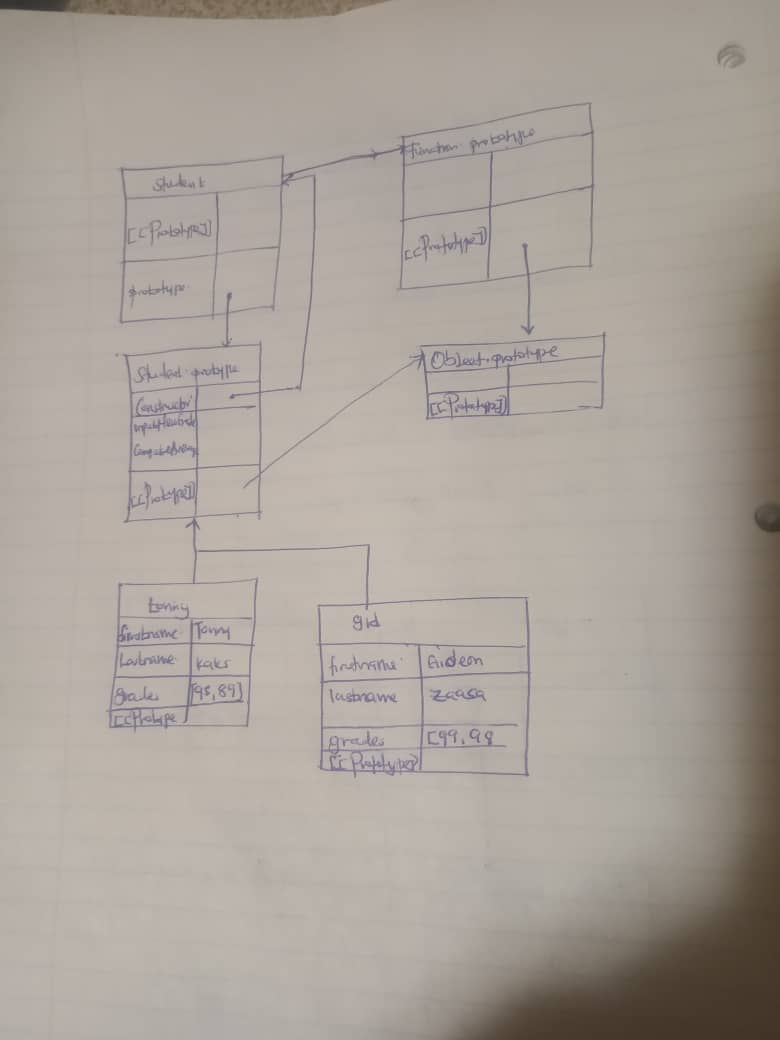 Student
[[Prototype]]
prototype
Function.prototype
[[Prototype]]
Student.protype
Constructor
[[Prototype]]
Object.prototype
[[Prototype]]
tonny
firstname Tonny
Lastname Kaks
grades [98,89]
[[Protype
gid
firstname Gideon
lastname Zaasa
grades [99,98
[[Prototype]]